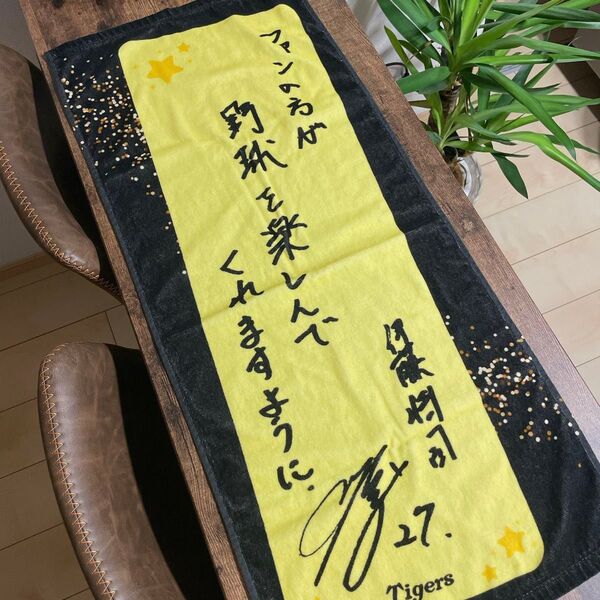 ファンの方が
野球を楽しんで
くれますように.
伊藤将司
27.
Tigers